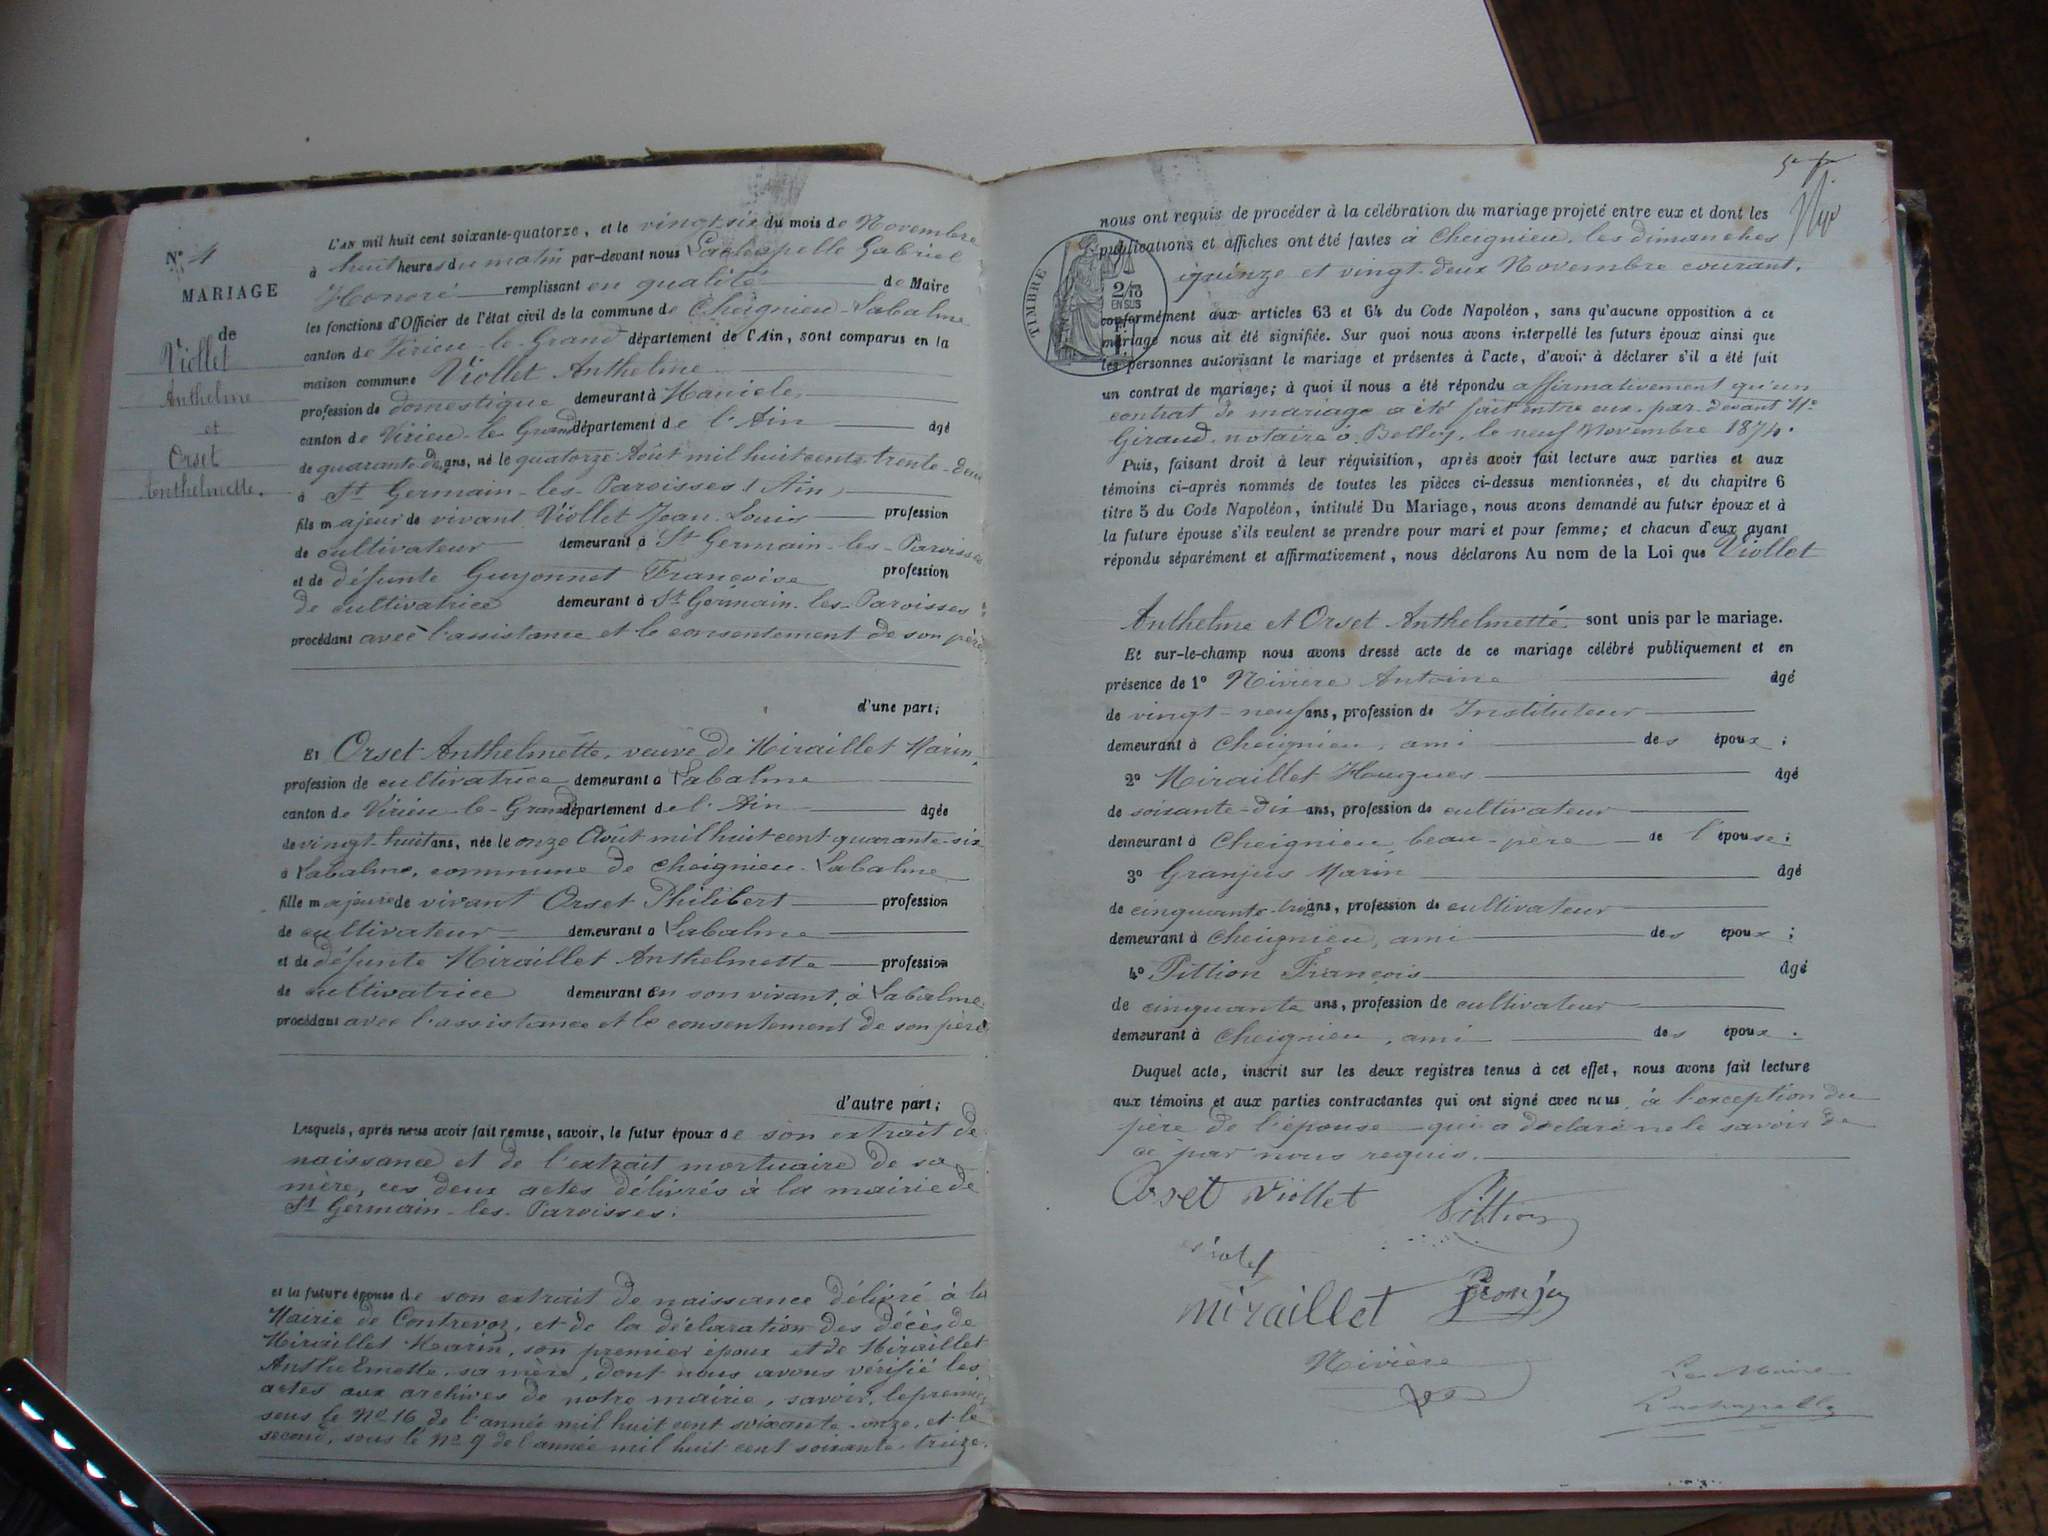 N° 4
MARIAGE
de
Viollet
Anthelme
et
Orset
Anthelmette.
L'AN mil huit cent soixante-quatorze, et le vingt-six du mois de Novembre
à huit heures du matin par-devant nous Lachapelle Gabriel
Honoré remplissant en qualité de Maire
les fonctions d'Officier de l'état civil de la commune de Cheignieu-Labalme
canton de Virieu-le-Grand département de l'Ain, sont comparus en la
maison commune Viollet Anthelme
profession de domestique demeurant à
canton de Virieu-le-Grand département de l'Ain âgé
de quarante-deux ans, né le quatorze Août mil huit cent trente-deux
à St Germain-les-Paroisses (Ain)
fils majeur de vivant Viollet Jean-Louis profession
de cultivateur demeurant à St Germain-les-Paroisses
et de défunte Guyonnet Françoise profession
de cultivatrice demeurant à St Germain-les-Paroisses
procédant avec l'assistance et le consentement de son père
d'une part;
Et Orset Anthelmette, veuve de Miraillet Marin,
profession de cultivatrice demeurant à Labalme
canton de Virieu-le-Grand département de l'Ain âgée
de vingt-huit ans, née le onze Août mil huit cent quarante-six
à Labalme, commune de Cheignieu-Labalme
fille majeure de vivant Orset Philibert profession
de cultivateur demeurant à Labalme
et de défunte Miraillet Anthelmette profession
de cultivatrice demeurant en son vivant, à Labalme
procédant avec l'assistance et le consentement de son père
d'autre part;
Lesquels, après nous avoir fait remise, savoir, le futur époux de son extrait de
naissance et de l'extrait mortuaire de sa
mère, ces deux actes délivrés à la mairie de
St Germain-les-Paroisses;
et la future épouse de son extrait de naissance délivré à la
Mairie de Contrevoz, et de la déclaration des décès de
Miraillet Marin, son premier époux et de Miraillet
Anthelmette, sa mère, dont nous avons vérifié les
actes aux archives de notre mairie, savoir, le premier
sous le No 16 de l'année mil huit cent soixante-onze, et le
second, sous le No 9 de l'année mil huit cent soixante-treize.
nous ont requis de procéder à la célébration du mariage projeté entre eux et dont les
publications et affiches ont été faites à Cheignieu, les dimanches
quinze et vingt-deux Novembre courant,
TIMBRE
2/10
EN SUS
conformément aux articles 63 et 64 du Code Napoléon, sans qu'aucune opposition à ce
mariage nous ait été signifiée. Sur quoi nous avons interpellé les futurs époux ainsi que
les personnes autorisant le mariage et présentes à l'acte, d'avoir à déclarer s'il a été fait
un contrat de mariage; à quoi il nous a été répondu affirmativement qu'un
contrat de mariage a été fait entre eux par-devant Me
Giraud, notaire à Belley, le neuf Novembre 1874.
Puis, faisant droit à leur réquisition, après avoir fait lecture aux parties et aux
témoins ci-après nommés de toutes les pièces ci-dessus mentionnées, et du chapitre 6
titre 5 du Code Napoléon, intitulé Du Mariage, nous avons demandé au futur époux et à
la future épouse s'ils veulent se prendre pour mari et pour femme; et chacun d'eux ayant
répondu séparément et affirmativement, nous déclarons Au nom de la Loi que Viollet
Anthelme et Orset Anthelmette sont unis par le mariage.
Et sur-le-champ nous avons dressé acte de ce mariage célébré publiquement et en
présence de 1° Nivière Antoine âgé
de vingt-neuf ans, profession de Instituteur
demeurant à Cheignieu, ami des époux;
2° Miraillet Hougues âgé
de soixante-dix ans, profession de cultivateur
demeurant à Cheignieu, beau-père de l'épouse;
3° Granjus Marin âgé
de cinquante-trois ans, profession de cultivateur
demeurant à Cheignieu, ami des époux;
4° Pittion François âgé
de cinquante ans, profession de cultivateur
demeurant à Cheignieu, ami des époux.
Duquel acte, inscrit sur les deux registres tenus à cet effet, nous avons fait lecture
aux témoins et aux parties contractantes qui ont signé avec nous, à l'exception du
père de l'épouse qui a déclaré ne le savoir de
ce par nous requis.
Orset Viollet Pittion
Miraillet
Nivière
Le Maire
Lachapelle